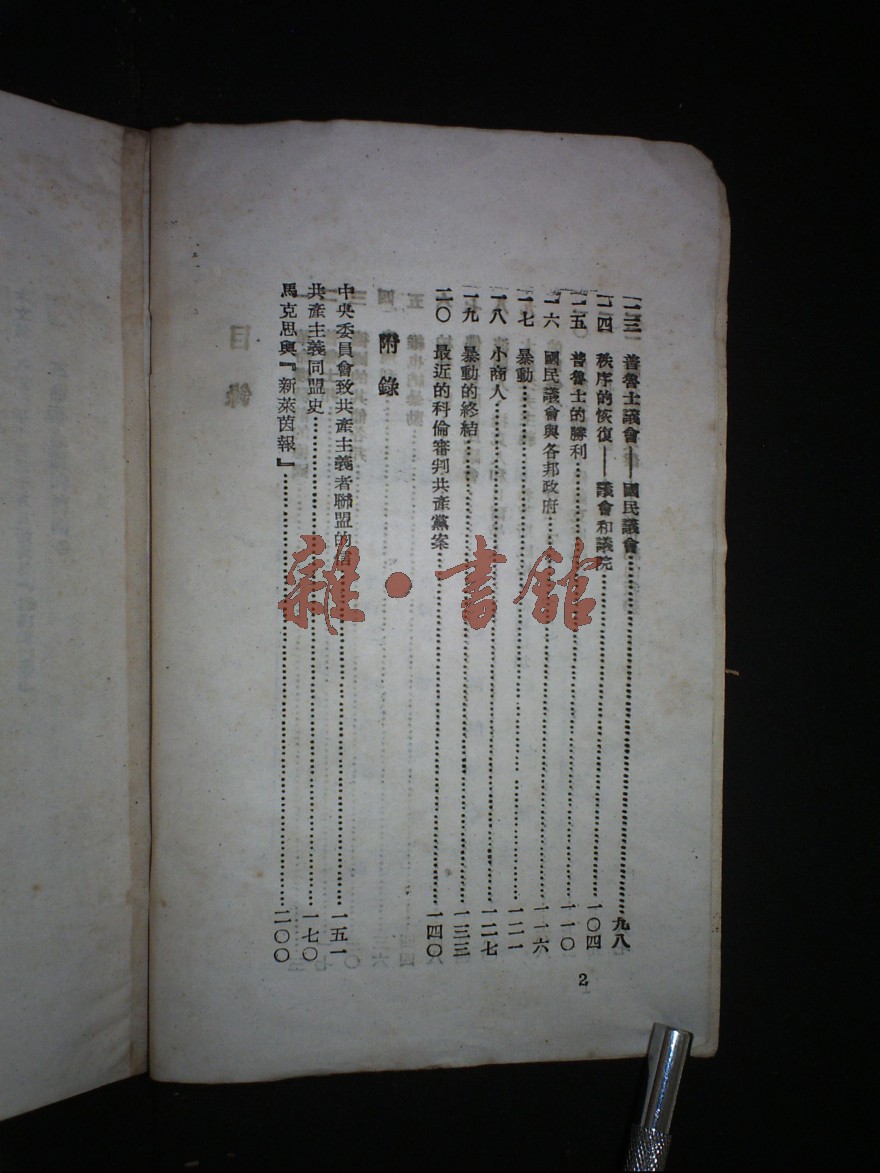 一三　普魯士議會——國民議會……九八
一四　秩序的恢復——議會和議院……一〇四
一五　普魯士的勝利……一一〇
一六　國民議會與各邦政府……一一六
一七　暴動……一二一
一八　小商人……一二七
一九　暴動的終結……一三三
二〇　最近的科倫審判共產黨案……一四〇
附錄
中央委員會致共產主義者聯盟的信……一五一
共產主義同盟史……一七〇
馬克思與『新萊茵報』……二〇〇
2
雜·書館